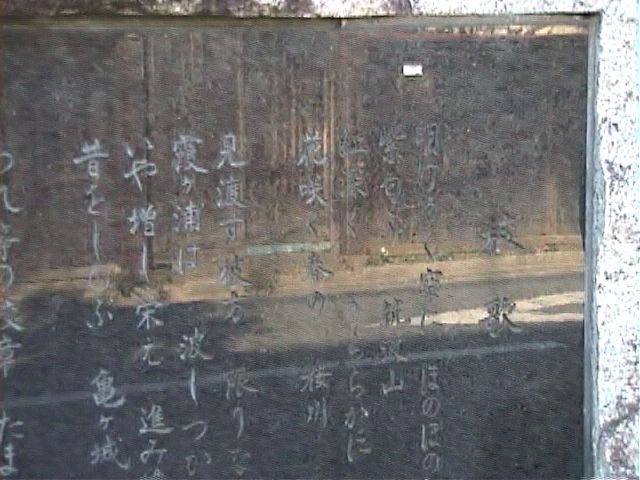 校歌
明けゆく窓に ほのぼの
紫匂ふ 筑波山
紅深く うららかに
花咲く春の 桜川
見渡す彼方 限りな
霞ヶ浦は 波しづか
いや増し栄え 進み
昔をしのぶ 亀ヶ城
れ等の文章 たま